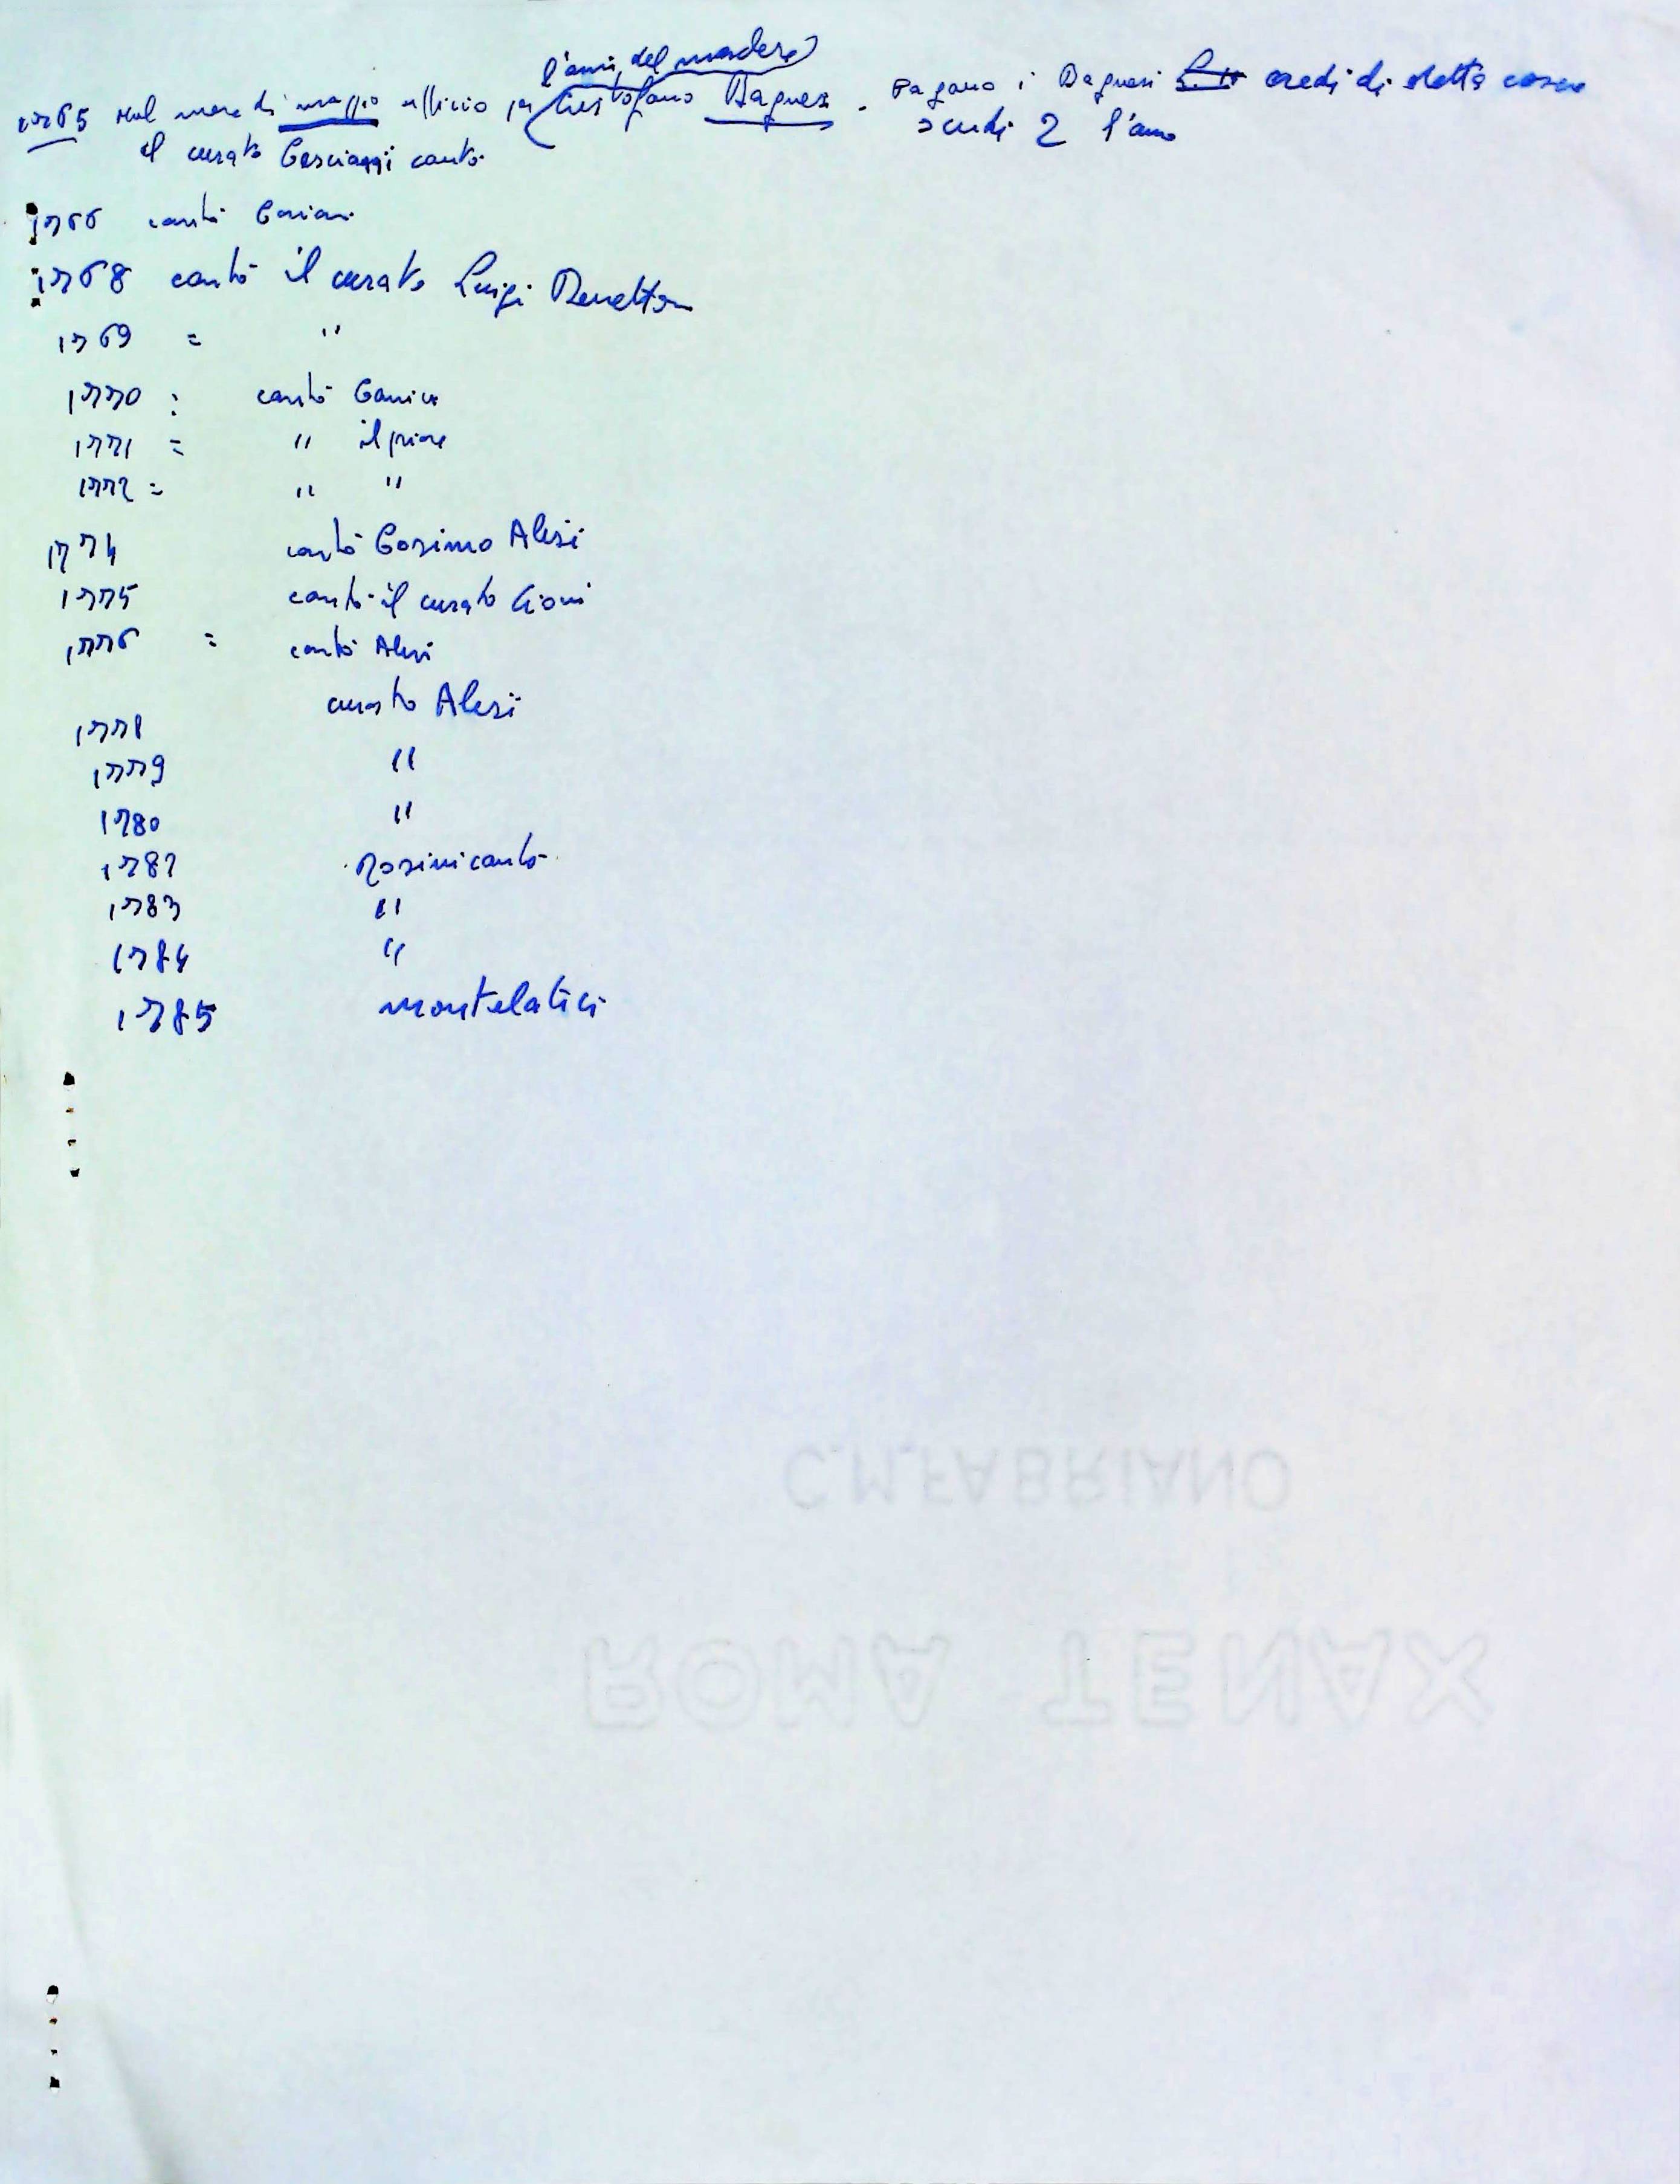 l'anni del
1765 Nel mese di maggio ufficio per Cristofano Bagnesi. Pagano i Bagnesi eredi di detta
il curato canto. scudi 2 l'anno
1766 cantò
1768 cantò il curato Luigi
1769 = "
1770 : cantò
1771 = " il priore
1772 = " "
1774 cantò Cosimo Alesi
1775 cantò il curato Cioni
1776 = cantò Alesi
curato Alesi
1778
1779 "
1780 "
1782 Rosini cantò
1783 "
1784 "
1785 Montelatici
C.M.FABRIANO
ROMA TENAX